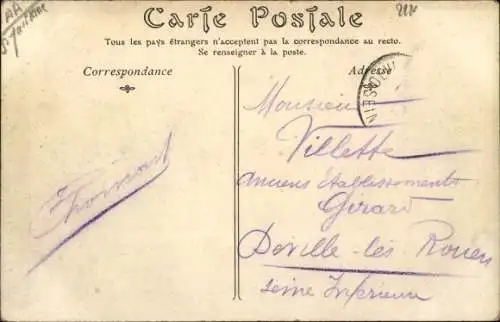 Carte Postale
Tous les pays étrangers n'acceptent pas la correspondance au recto.
Se renseigner à la poste.
Correspondance
Adresse
Monsieur
Villette
Anciens établissements
Girard
Déville-lès-Rouen
Seine Inférieure